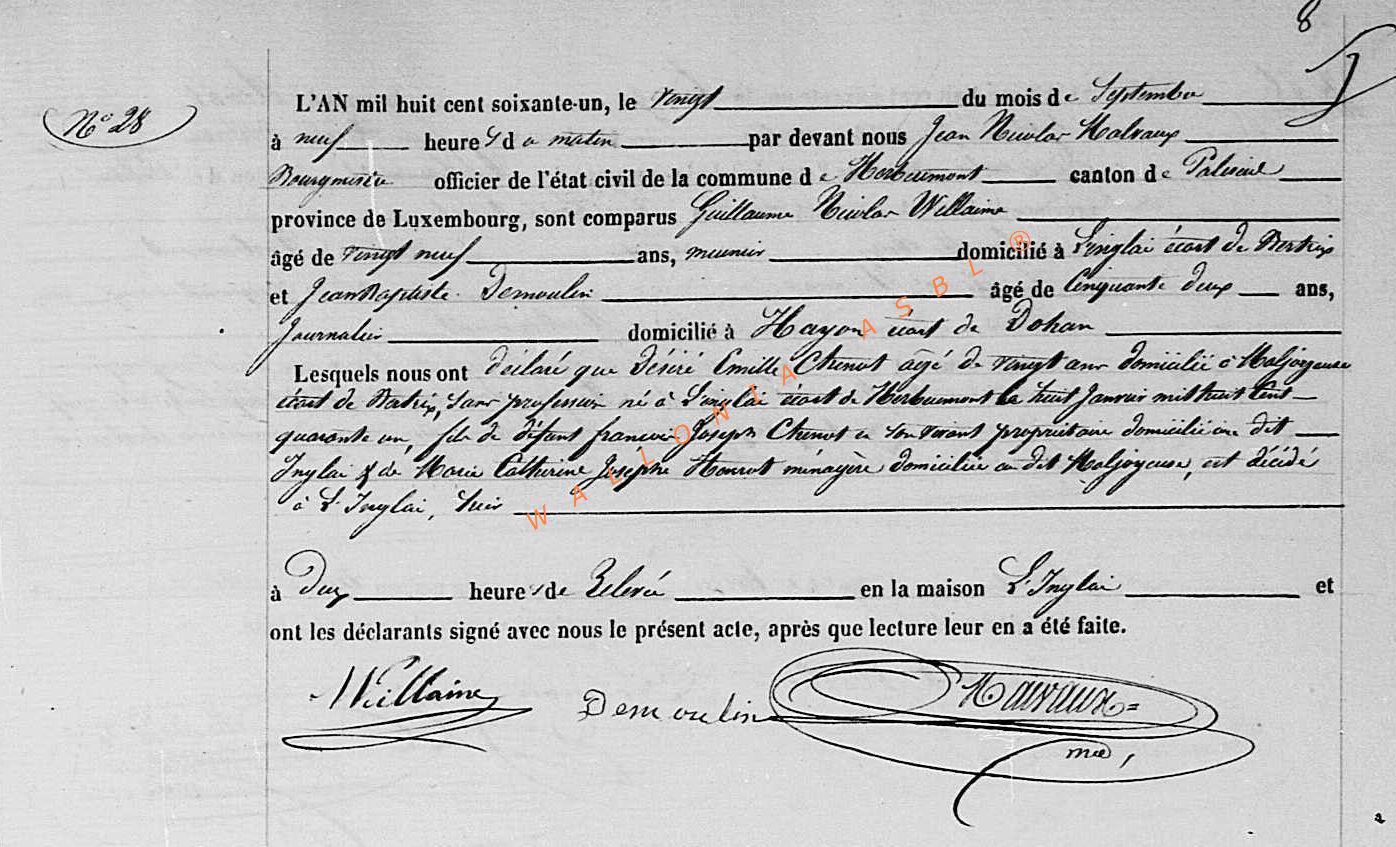 8
N° 28
L'AN mil huit cent soixante-un, le vingt du mois de Septembre
à neuf heures du matin par devant nous Jean Nicolas Malvaux
Bourgmestre officier de l'état civil de la commune de Herbeumont canton de Paliseul
province de Luxembourg, sont comparus Guillaume Nicolas Willaime
âgé de vingt neuf ans, meunier domicilié à L'inglai écart de Bertrix
et Jean Baptiste Demoulin âgé de Cinquante deux ans,
journalier domicilié à Hayon écart de Dohan
Lesquels nous ont déclaré que Désiré Emille Chenot agé de vingt ans domicilié à Maljoyeuse
écart de Bertrix, sans profession né à L'inglai écart de Herbeumont le huit Janvier mil huit Cent
quarante un, fils de défunt francois Joseph Chenot en son vivant propriétaire domicilié au dit
Inglai & de Marie Catherine Josephe Honrot ménagère domiciliée au dit Maljoyeuse, est décédé
à L'Inglai, hier
à Deux heures de Relevée en la maison L'Inglai et
ont les déclarants signé avec nous le présent acte, après que lecture leur en a été faite.
Willaine Demoulin Malvaux
WALLONIA ASBL ®